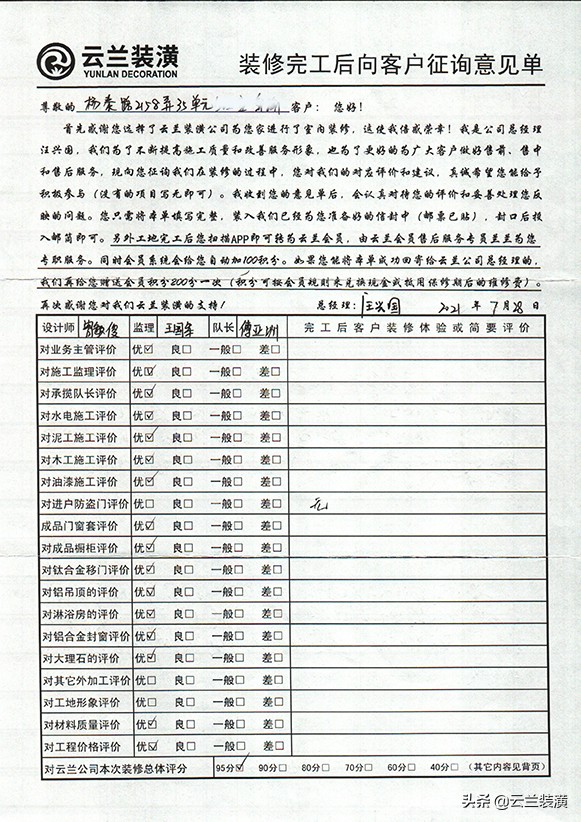 云兰装潢
YUNLAN DECORATION
装修完工后向客户征询意见单
尊敬的 杨泰路2158弄35单元 客户： 您好！
首先感谢您选择了云兰装潢公司为您家进行了室内装修，这使我倍感荣幸！我是公司总经理
汪兴国，我们为了不断提高施工质量和改善服务形象，也为了更好的为广大客户做好售前、售中
和售后服务，现向您征询我们在装修的过程中，您对我们的对应评价和建议，真诚希望您能给予
积极参与（没有的项目写无即可）。我收到您的意见单后，会认真对待您的评价和妥善处理您反
映的问题。您只需将本单填写完整，装入我们已经为您准备好的信封中（邮票已贴），封口后投
入邮筒即可。另外工地完工后您扫描APP即可转为云兰会员，由云兰会员售后服务专员兰兰为您
专职服务。同时会员系统会给您自动加100积分。如果您能将本单成功回寄给云兰公司总经理的，
我们再给您赠送会员积分200分一次（积分可按会员规则来兑换现金或抵用保修期后的维修费）。
再次感谢您对我们云兰装潢的支持！ 总经理：汪兴国 2021 年 7月28日
设计师 监理 王国冬 队长 傅亚洲 完工后客户装修体验或简要评价
对业务主管评价 优☑ 良□ 一般□ 差□
对施工监理评价 优☑ 良□ 一般□ 差□
对承揽队长评价 优☑ 良□ 一般□ 差□
对水电施工评价 优☑ 良□ 一般□ 差□
对泥工施工评价 优☑ 良□ 一般□ 差□
对木工施工评价 优☑ 良□ 一般□ 差□
对油漆施工评价 优☑ 良□ 一般□ 差□
对进户防盗门评价 优□ 良□ 一般□ 差□ 无
成品门窗套评价 优☑ 良□ 一般□ 差□
对成品橱柜评价 优☑ 良□ 一般□ 差□
对钛合金移门评价 优☑ 良□ 一般□ 差□
对铝吊顶的评价 优☑ 良□ 一般□ 差□
对淋浴房的评价 优☑ 良□ 一般□ 差□
对铝合金封窗评价 优☑ 良□ 一般□ 差□
对大理石的评价 优☑ 良□ 一般□ 差□
对其它外加工评价 优□ 良□ 一般□ 差□
对工地形象评价 优□ 良□ 一般□ 差□
对材料质量评价 优☑ 良□ 一般□ 差□
对工程价格评价 优☑ 良□ 一般□ 差□
对云兰公司本次装修总体评分 95分☑ 90分□ 80分□ 70分□ 60分□ 40分□ （其它内容见背页）
头条 @云兰装潢